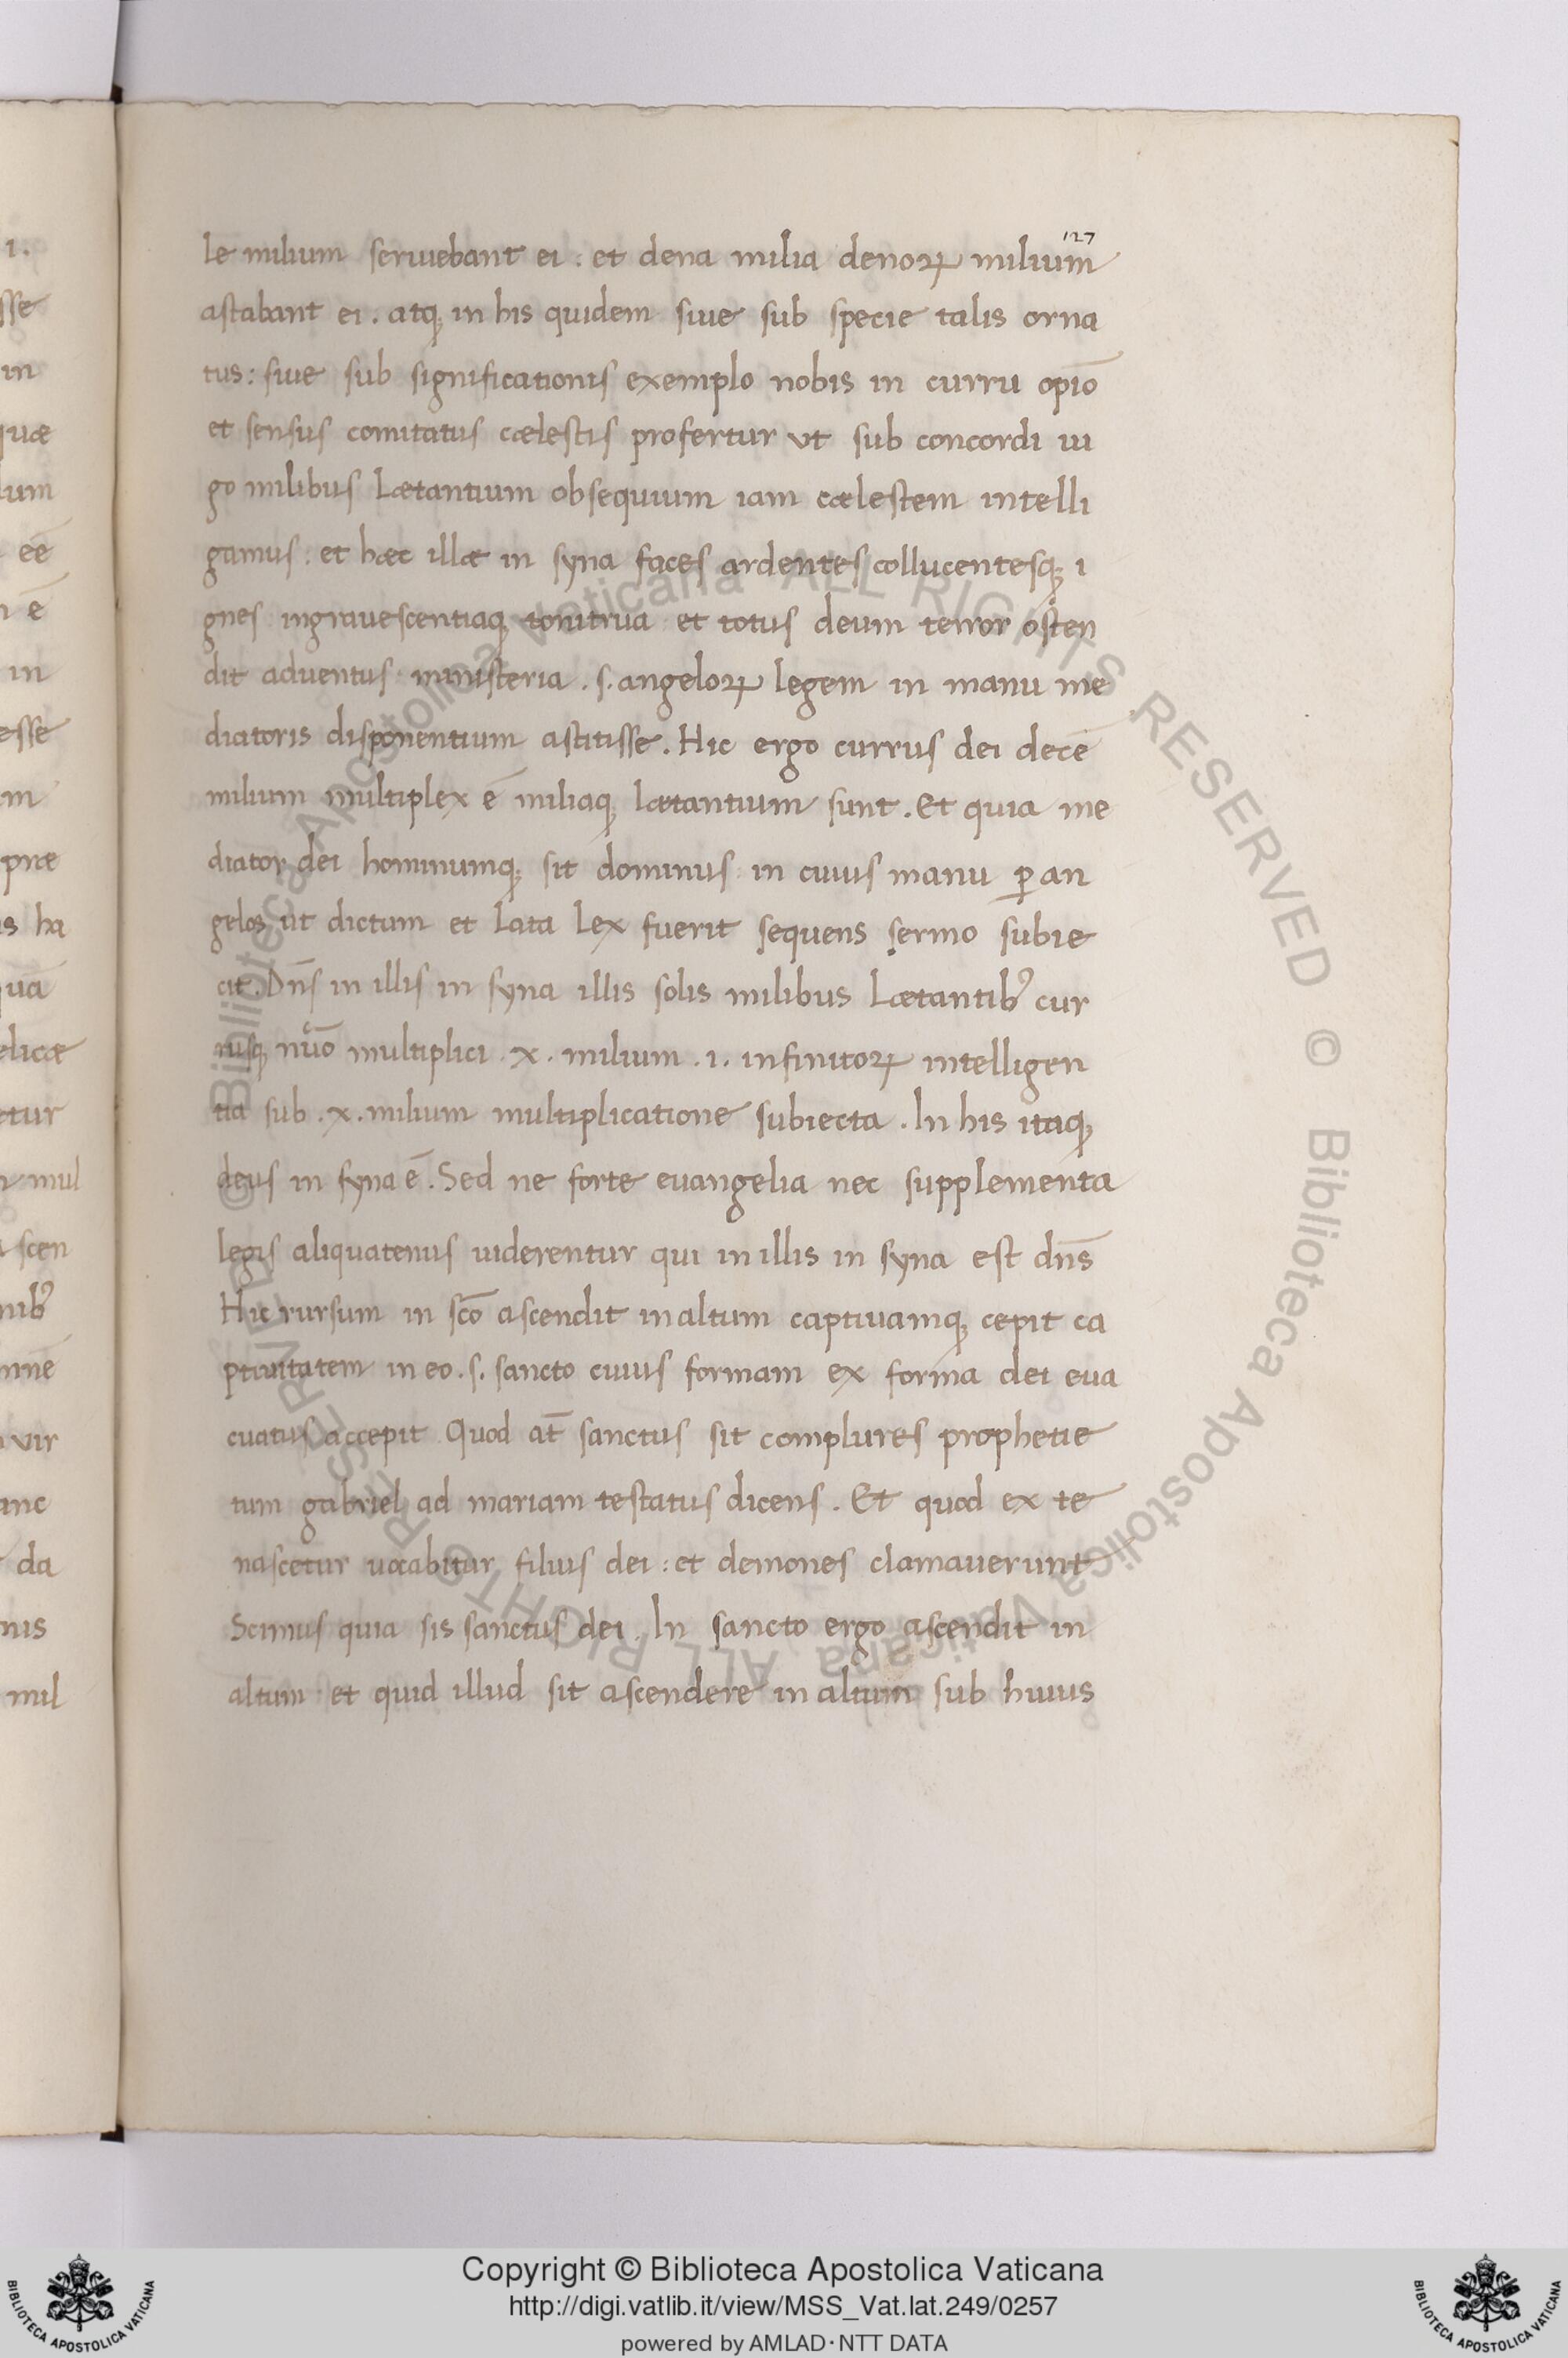 127
le milium seruiebant ei : et dena milia denoꝝ milium
astabant ei . atqꝫ in his quidem siue sub specie talis orna
tus : siue sub significationis exemplo nobis in curru opiō
et sensus comitatus cælestis profertur vt sub concordi iu
go milibus Lætantium obsequium iam cælestem intelli
gamus : et hæc illæ in syna faces ardentes collucentesqꝫ i
gnes ingrauescentiaqꝫ tonitrua et totus deum terror osten
dit aduentus ministeria . s. angeloꝝ legem in manu me
diatoris disponentium astitisse . Hic ergo currus dei decē
milium multiplex ē miliaqꝫ lætantium sunt . Et quia me
diator dei hominumqꝫ sit dominus in cuius manu ꝑ an
gelos ut dictum et Lata Lex fuerit sequens sermo subie
cit . Dn̄s in illis in syna illis solis milibus Lætantibꝰ cur
rusqꝫ multiplici . x . milium . i . infinitoꝝ intelligen
tia sub . x . milium multiplicatione subiecta . In his itaqꝫ
deus in syna ē . Sed ne forte euangelia nec supplementa
legis aliquatenus uiderentur qui in illis in syna est dn̄s
Hic rursum in sc̄o ascendit in altum captiuamqꝫ cepit ca
ptiuitatem in eo . s. sancto cuius formam ex forma dei eua
cuatus accepit Quod at̄ sanctus sit complures prophetie
tum gabriel ad mariam testatus dicens . Et quod ex te
nascetur uocabitur filius dei : et demones clamauerunt
Scimus quia sis sanctus dei . In sancto ergo ascendit in
altum et quid illud sit ascendere in altum sub huius
Copyright © Biblioteca Apostolica Vaticana
http://digi.vatlib.it/view/MSS_Vat.lat.249/0257
powered by AMLAD·NTT DATA